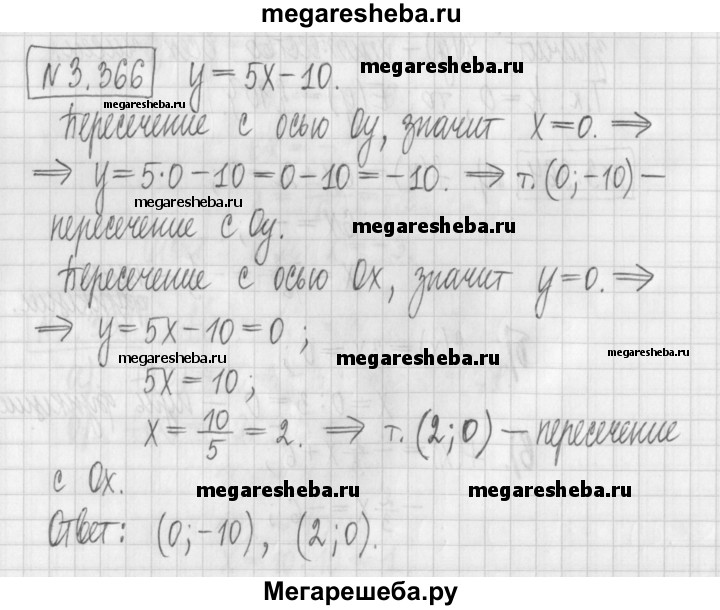 megaresheba.ru
№3.366 y = 5x - 10. megaresheba.ru
megaresheba.ru
Пересечение с осью Oy, значит x = 0. ⇒
⇒ y = 5·0 - 10 = 0 - 10 = -10. ⇒ т. (0; -10) —
megaresheba.ru
пересечение с Oy. megaresheba.ru
Пересечение с осью Ox, значит y = 0. ⇒
⇒ y = 5x - 10 = 0 ;
megaresheba.ru megaresheba.ru megaresheba.ru
5x = 10 ;
x = 10/5 = 2. ⇒ т. (2; 0) — пересечение
с Ox. megaresheba.ru megaresheba.ru
Ответ: (0; -10), (2; 0).
Мегарешеба.ру